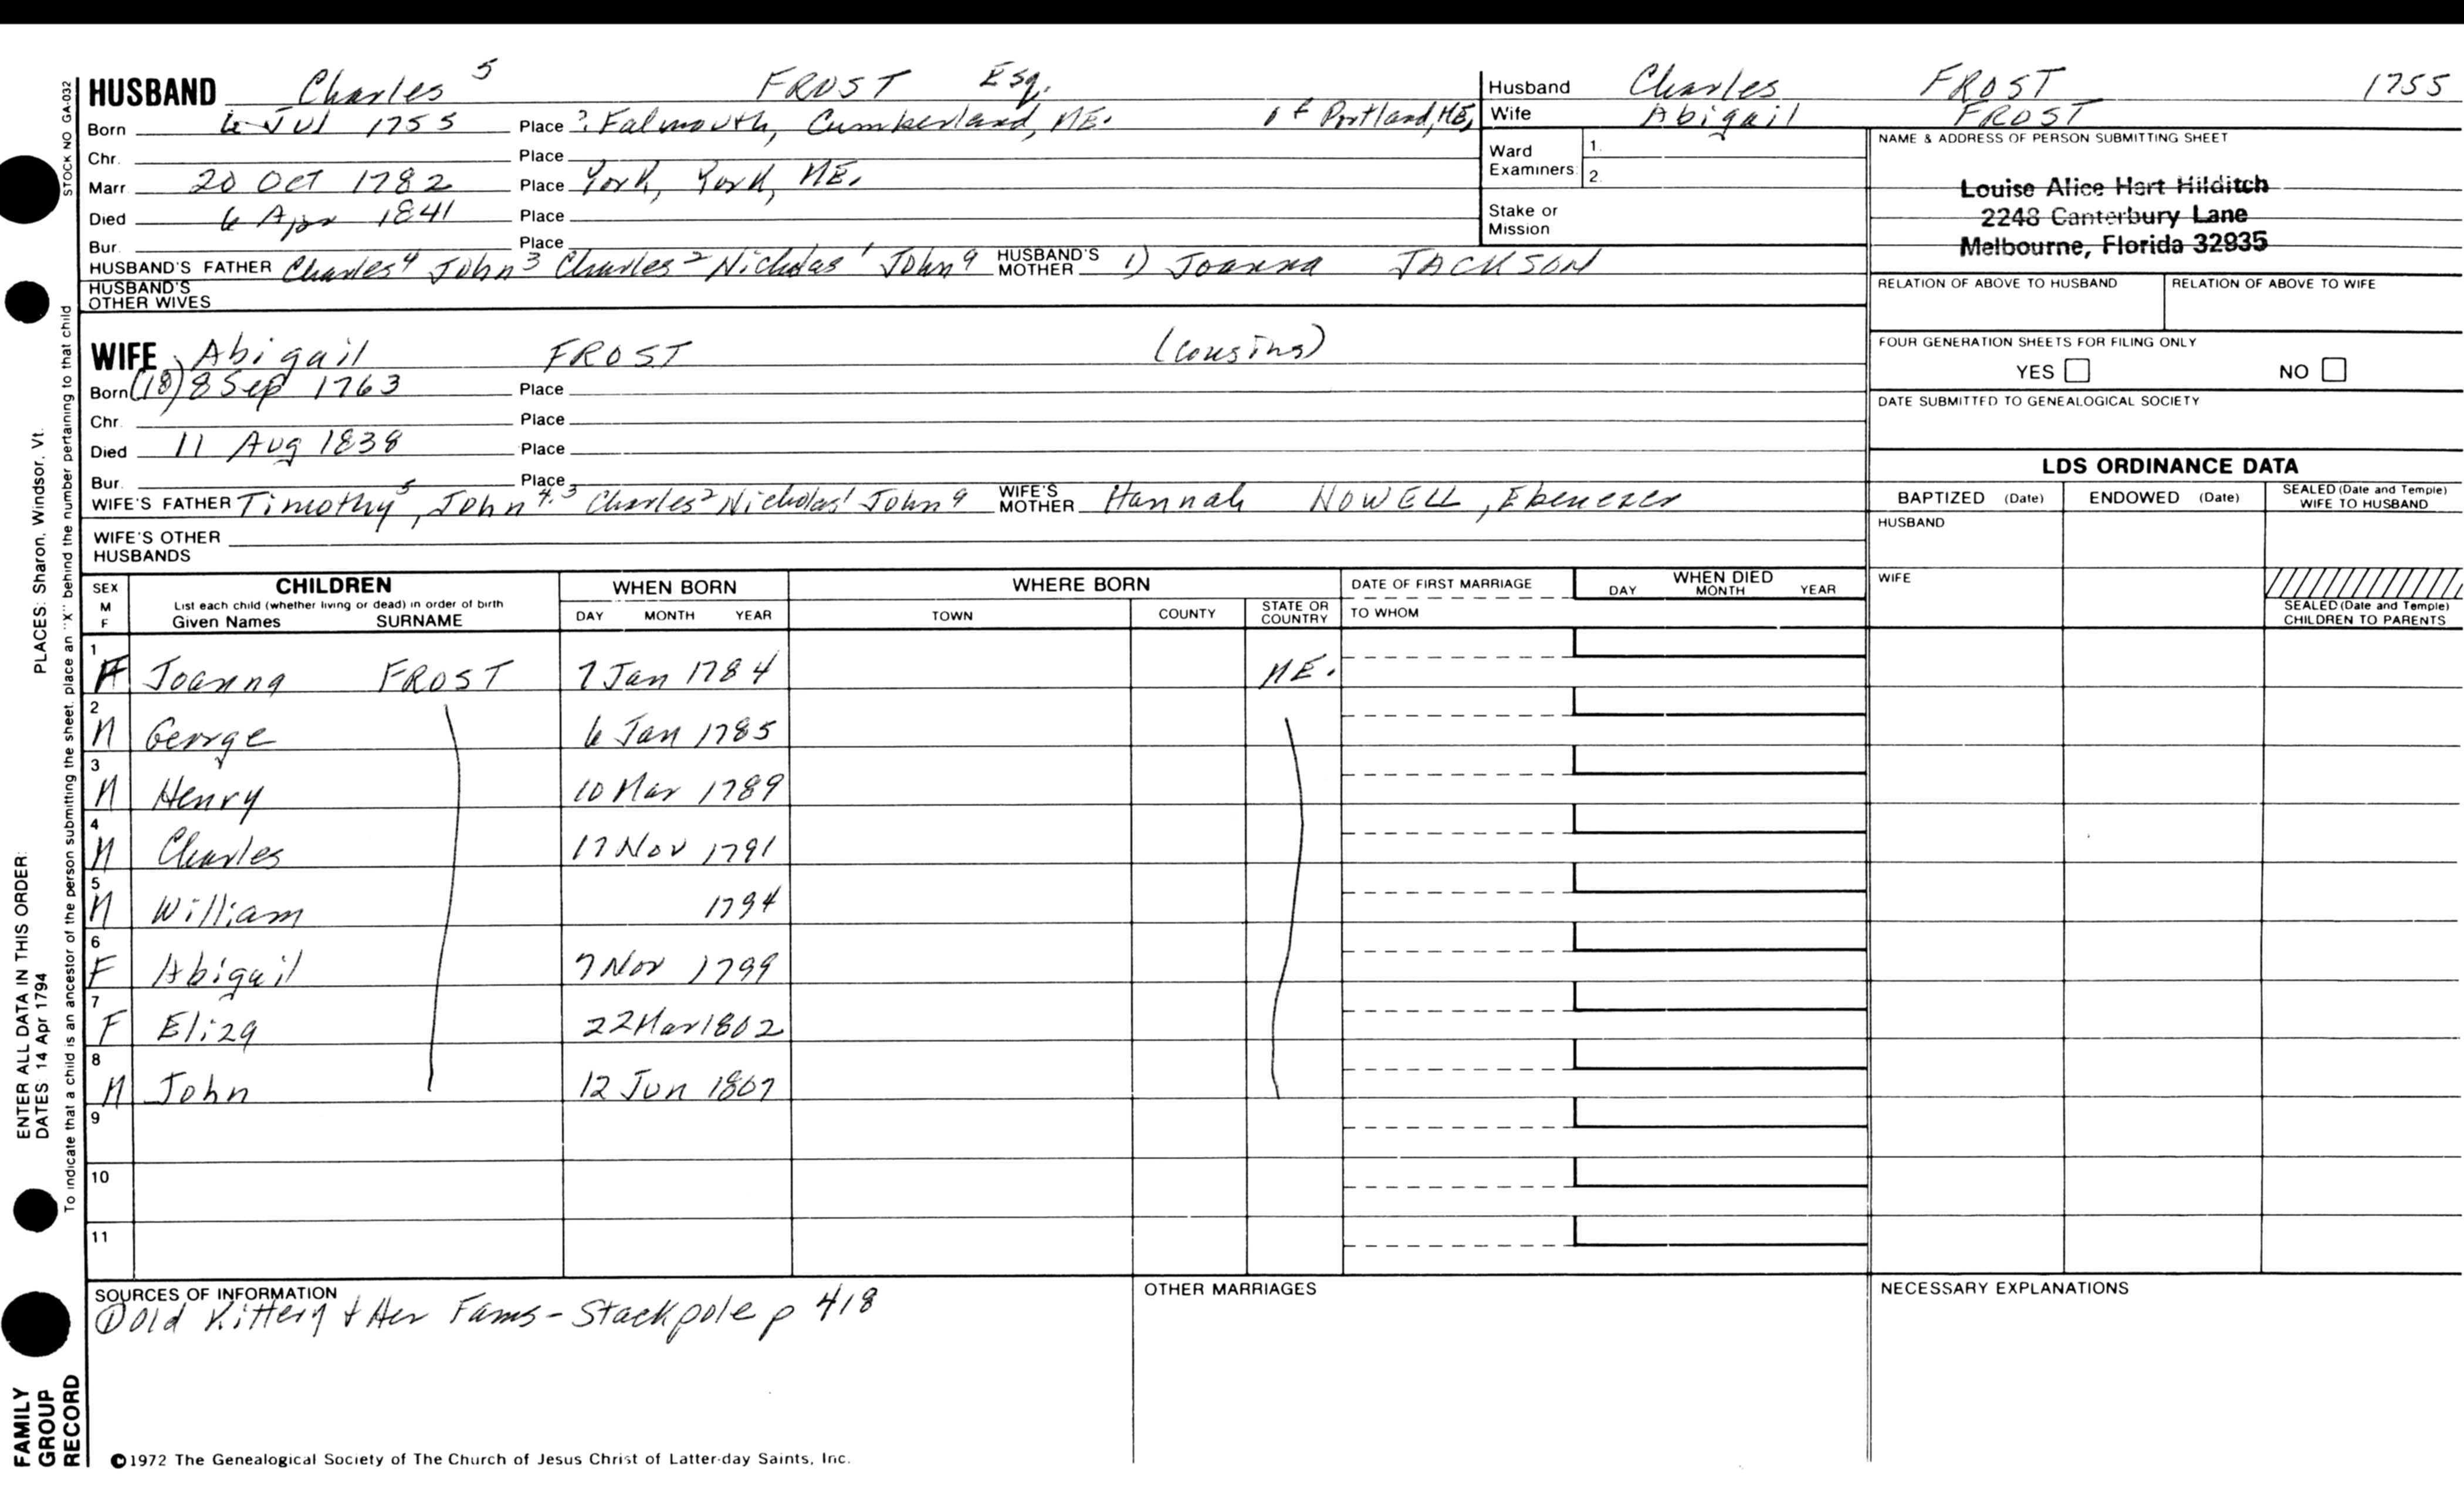 HUSBAND Charles 5 FROST Esq.
Born 6 Jul 1755 Place ? Falmouth, Cumberland, ME. of Portland, ME,
Chr. Place
Marr. 20 Oct 1782 Place York, York, ME.
Died 6 Apr 1841 Place
Bur. Place
HUSBAND'S FATHER Charles 4 John 3 Charles 2 Nicholas 1 John a HUSBAND'S MOTHER 1) Joanna JACKSON
HUSBAND'S OTHER WIVES
WIFE Abigail FROST (cousins)
Born (18) 8 Sep 1763 Place
Chr. Place
Died 11 Aug 1838 Place
Bur. Place
WIFE'S FATHER Timothy 5, John 4,3 Charles 2 Nicholas 1 John a WIFE'S MOTHER Hannah NOWELL, Ebenezer
WIFE'S OTHER HUSBANDS
Husband Charles FROST 1755
Wife Abigail FROST
Ward Examiners 1.
2.
Stake or Mission
NAME & ADDRESS OF PERSON SUBMITTING SHEET
Louise Alice Hart Hilditch
2248 Canterbury Lane
Melbourne, Florida 32935
RELATION OF ABOVE TO HUSBAND RELATION OF ABOVE TO WIFE
FOUR GENERATION SHEETS FOR FILING ONLY
YES NO
DATE SUBMITTED TO GENEALOGICAL SOCIETY
LDS ORDINANCE DATA
BAPTIZED (Date) ENDOWED (Date) SEALED (Date and Temple) WIFE TO HUSBAND
HUSBAND
WIFE
SEALED (Date and Temple) CHILDREN TO PARENTS
SEX M F CHILDREN WHEN BORN WHERE BORN DATE OF FIRST MARRIAGE WHEN DIED
List each child (whether living or dead) in order of birth
Given Names SURNAME DAY MONTH YEAR TOWN COUNTY STATE OR COUNTRY TO WHOM DAY MONTH YEAR
1 F Joanna FROST 7 Jan 1784 ME.
2 M George 6 Jan 1785
3 M Henry 10 Mar 1789
4 M Charles 17 Nov 1791
5 M William 1794
6 F Abigail 7 Nov 1799
7 F Eliza 22 Mar 1802
8 M John 12 Jun 1807
9
10
11
SOURCES OF INFORMATION
① Old Kittery & Her Fams - Stackpole p 418
OTHER MARRIAGES
NECESSARY EXPLANATIONS
©1972 The Genealogical Society of The Church of Jesus Christ of Latter-day Saints, Inc.
STOCK NO GA-032
To indicate that a child is an ancestor of the person submitting the sheet, place an "X" behind the number pertaining to that child
ENTER ALL DATA IN THIS ORDER: PLACES: Sharon, Windsor, Vt.
DATES 14 Apr 1794
FAMILY GROUP RECORD